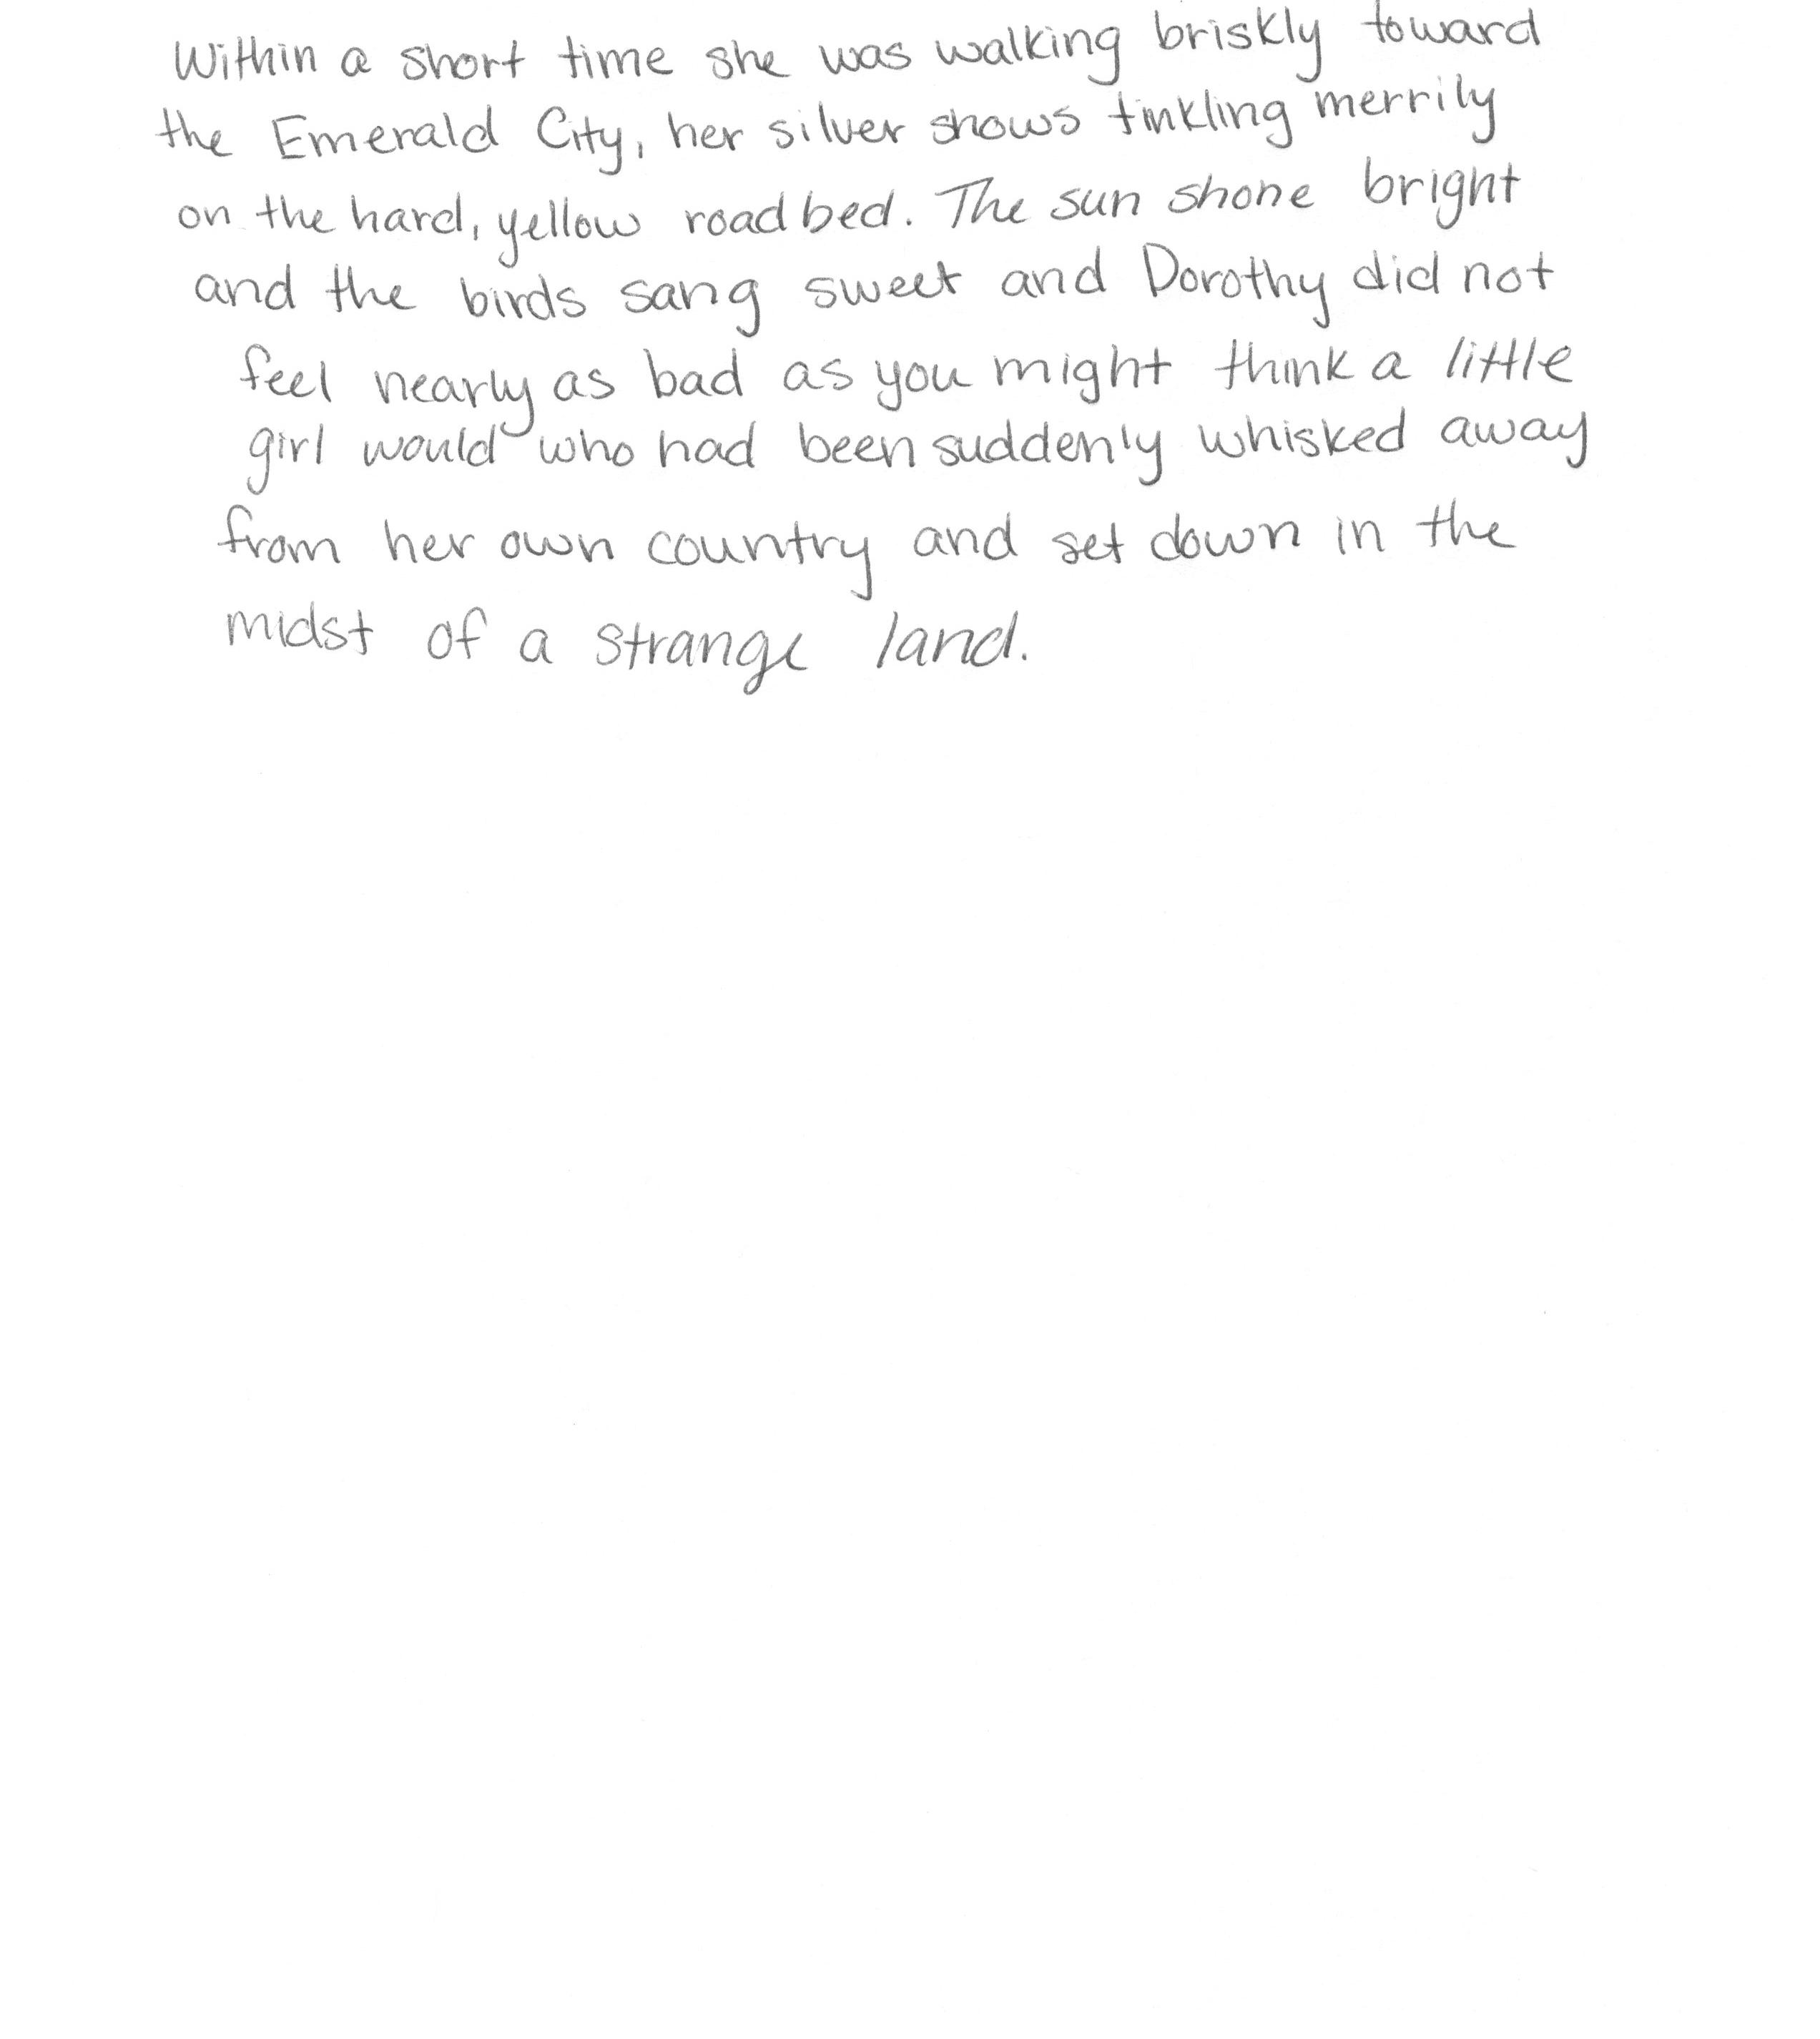 Within a short time she was walking briskly toward
the Emerald City, her silver shows tinkling merrily
on the hard, yellow road bed. The sun shone bright
and the birds sang sweet and Dorothy did not
feel nearly as bad as you might think a little
girl would who had been suddenly whisked away
from her own country and set down in the
midst of a strange land.